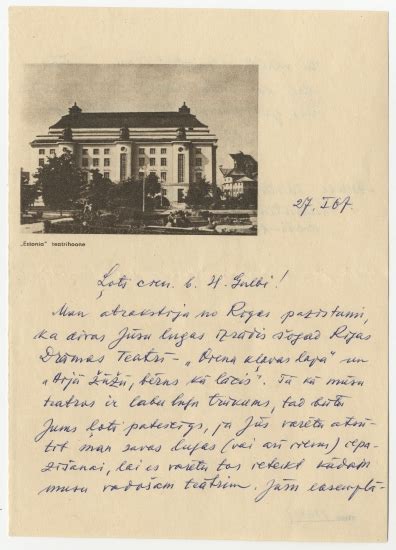 „Estonia" teatrihoone
27. I 67.
Ļoti cien. b. H. Gulbi!
Man atrakstīja no Rīgas pazistami,
ka divas Jūsu lugas izrādīs šogad Rīgas
Drāmas Teātrī - „Viena kļavas lapa" un
„Aijā žūžū, bērns kā lācis". Tā kā mūsu
teatros ir labu lugu trūkums, tad būtu
Jums ļoti pateicīgs, ja Jūs varētu atsū-
tīt man savas lugas (vai arī vienu) iepa-
zīšanai, lai es varētu tos ieteikt kādam
mūsu vadošam teātrim. Jūsu eksemplā-